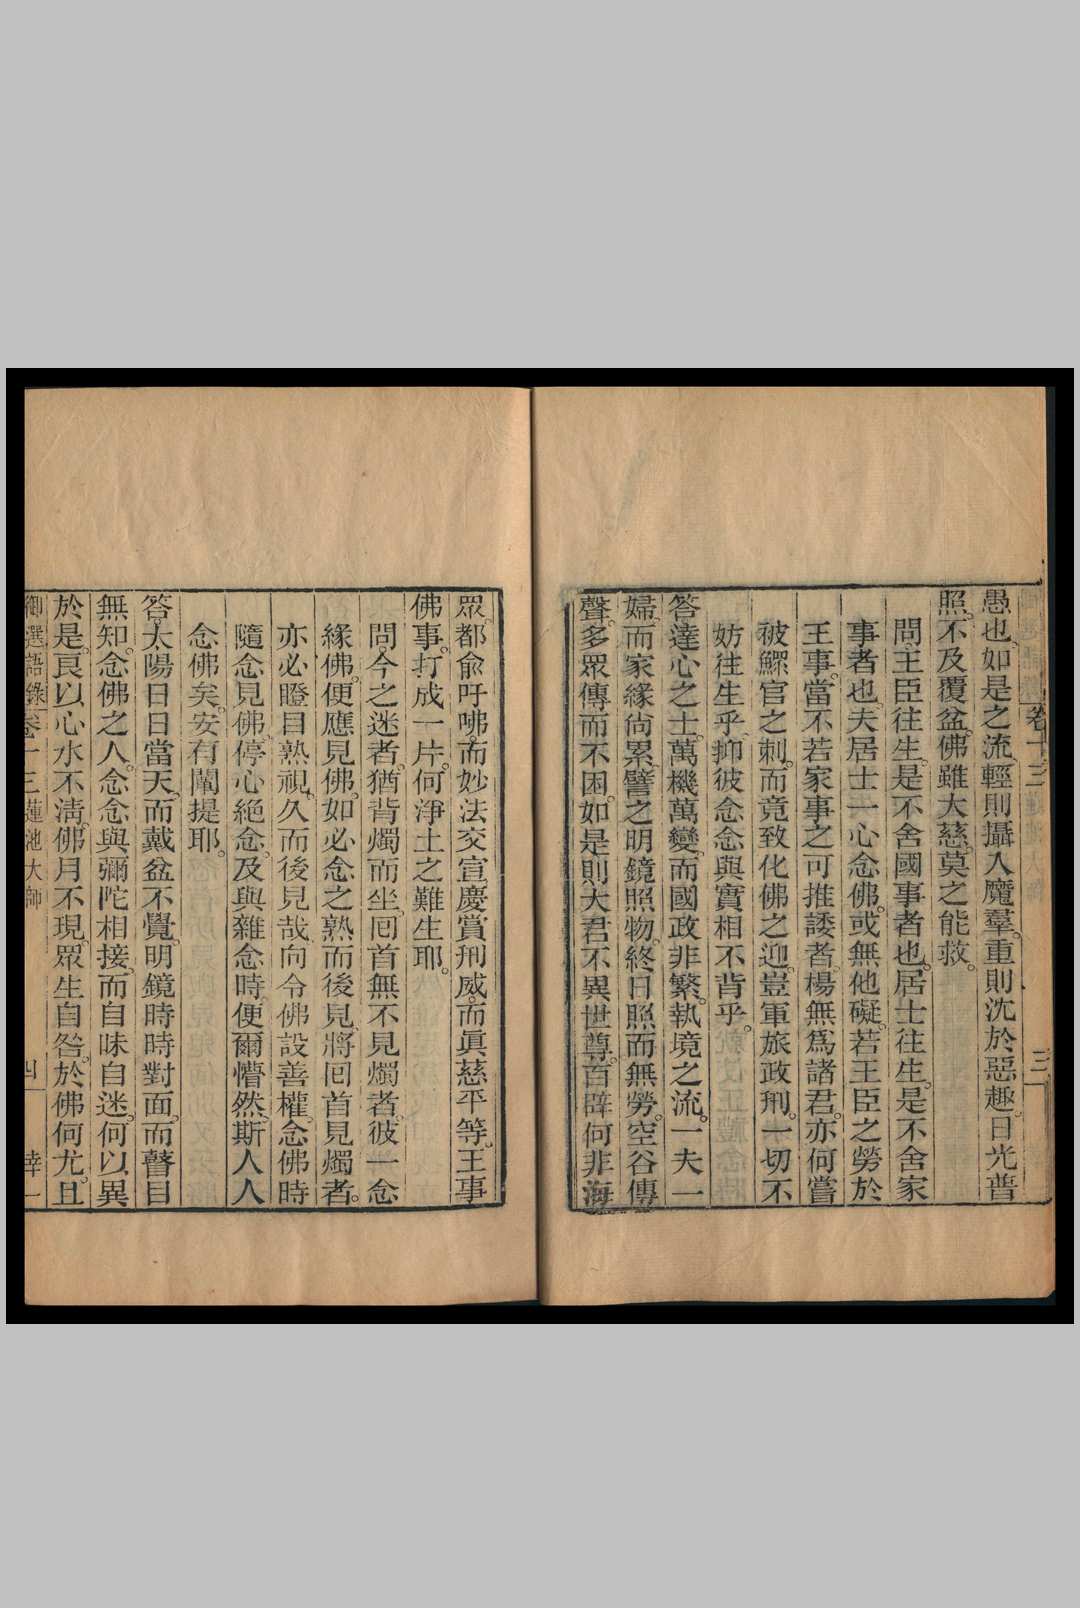 卷十三
三
愚也。如是之流。輕則攝入魔羣。重則沈於惡趣。日光普
照。不及覆盆。佛雖大慈。莫之能救。
問。王臣往生。是不舍國事者也。居士往生。是不舍家
事者也。夫居士一心念佛。或無他礙。若王臣之勞於
王事。當不若家事之可推諉者。楊無爲諸君。亦何嘗
被鰥官之刺。而竟致化佛之迎。豈軍旅政刑。一切不
妨往生乎。抑彼念念與實相不背乎。
答。達心之士。萬機萬變。而國政非繁。執境之流。一夫一
婦。而家緣尚累。譬之明鏡照物。終日照而無勞。空谷傳
聲。多眾傳而不困。如是則大君不異世尊。百辟何非海
眾。都俞吁咈。而妙法交宣。慶賞刑威。而眞慈平等。王事
佛事。打成一片。何淨土之難生耶。
問。今之迷者。猶背燭而坐。囘首無不見燭者。彼一念
緣佛。便應見佛。如必念之熟而後見。將囘首見燭者。
亦必瞪目熟視。久而後見哉。向令佛設善權。念佛時
隨念見佛。停心絕念。及與雜念時。便爾懵然。斯人人
念佛矣。安有闡提耶。
答。太陽日日當天。而戴盆不覺。明鏡時時對面。而瞽目
無知。念佛之人。念念與彌陀相接。而自昧自迷。何以異
於是。良以心水不淸。佛月不現。眾生自咎。於佛何尤。且
御選語錄 卷十三 蓮池大師 四 幸一